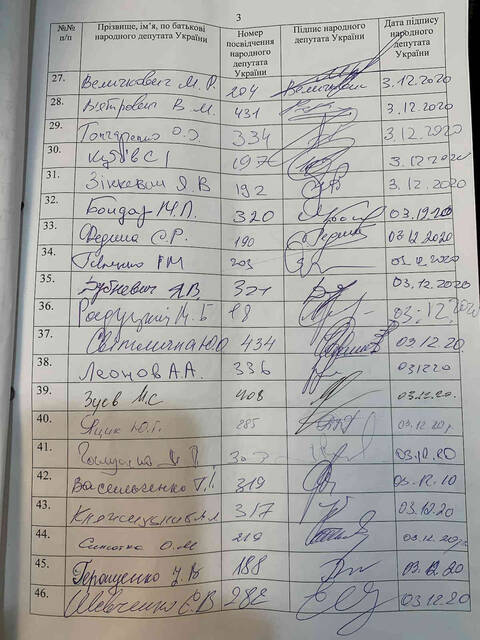 3
№№ п/п Прізвище, ім'я, по батькові народного депутата України Номер посвідчення народного депутата України Підпис народного депутата України Дата підпису народного депутата України
27. Величкович М. Р. 204 Величкович 3.12.2020
28. В'ятрович В. М. 431 3.12.2020
29. Гончаренко О.О. 334 3.12.2020
30. Кубів С І 197 3.12.2020
31. Зінкевич Я.В 192 3.12.2020
32. Бондар М.Л. 320 03.12.2020
33. Федина С.Р. 190 03.12.2020
34. 203 03.12.2020
35. Бубкевич Я.В 321 03.12.2020
36. М. Б 03.12.2020
37. Світлична Ю О 434 03.12.20.
38. Леонов А.А. 336 031220
39. Зуєв М.С 408 03.12.20.
40. Яцик Ю.Г. 285 03.12.20р.
41. 03.12.20
42. Васильченко Г.І. 319 03.12.20
43. 317 03.12.20
44. О.М 219 03.12.20р.
45. Геращенко І. В 188 03.12.20
46. Шевченко Є.В 282 03.12.20